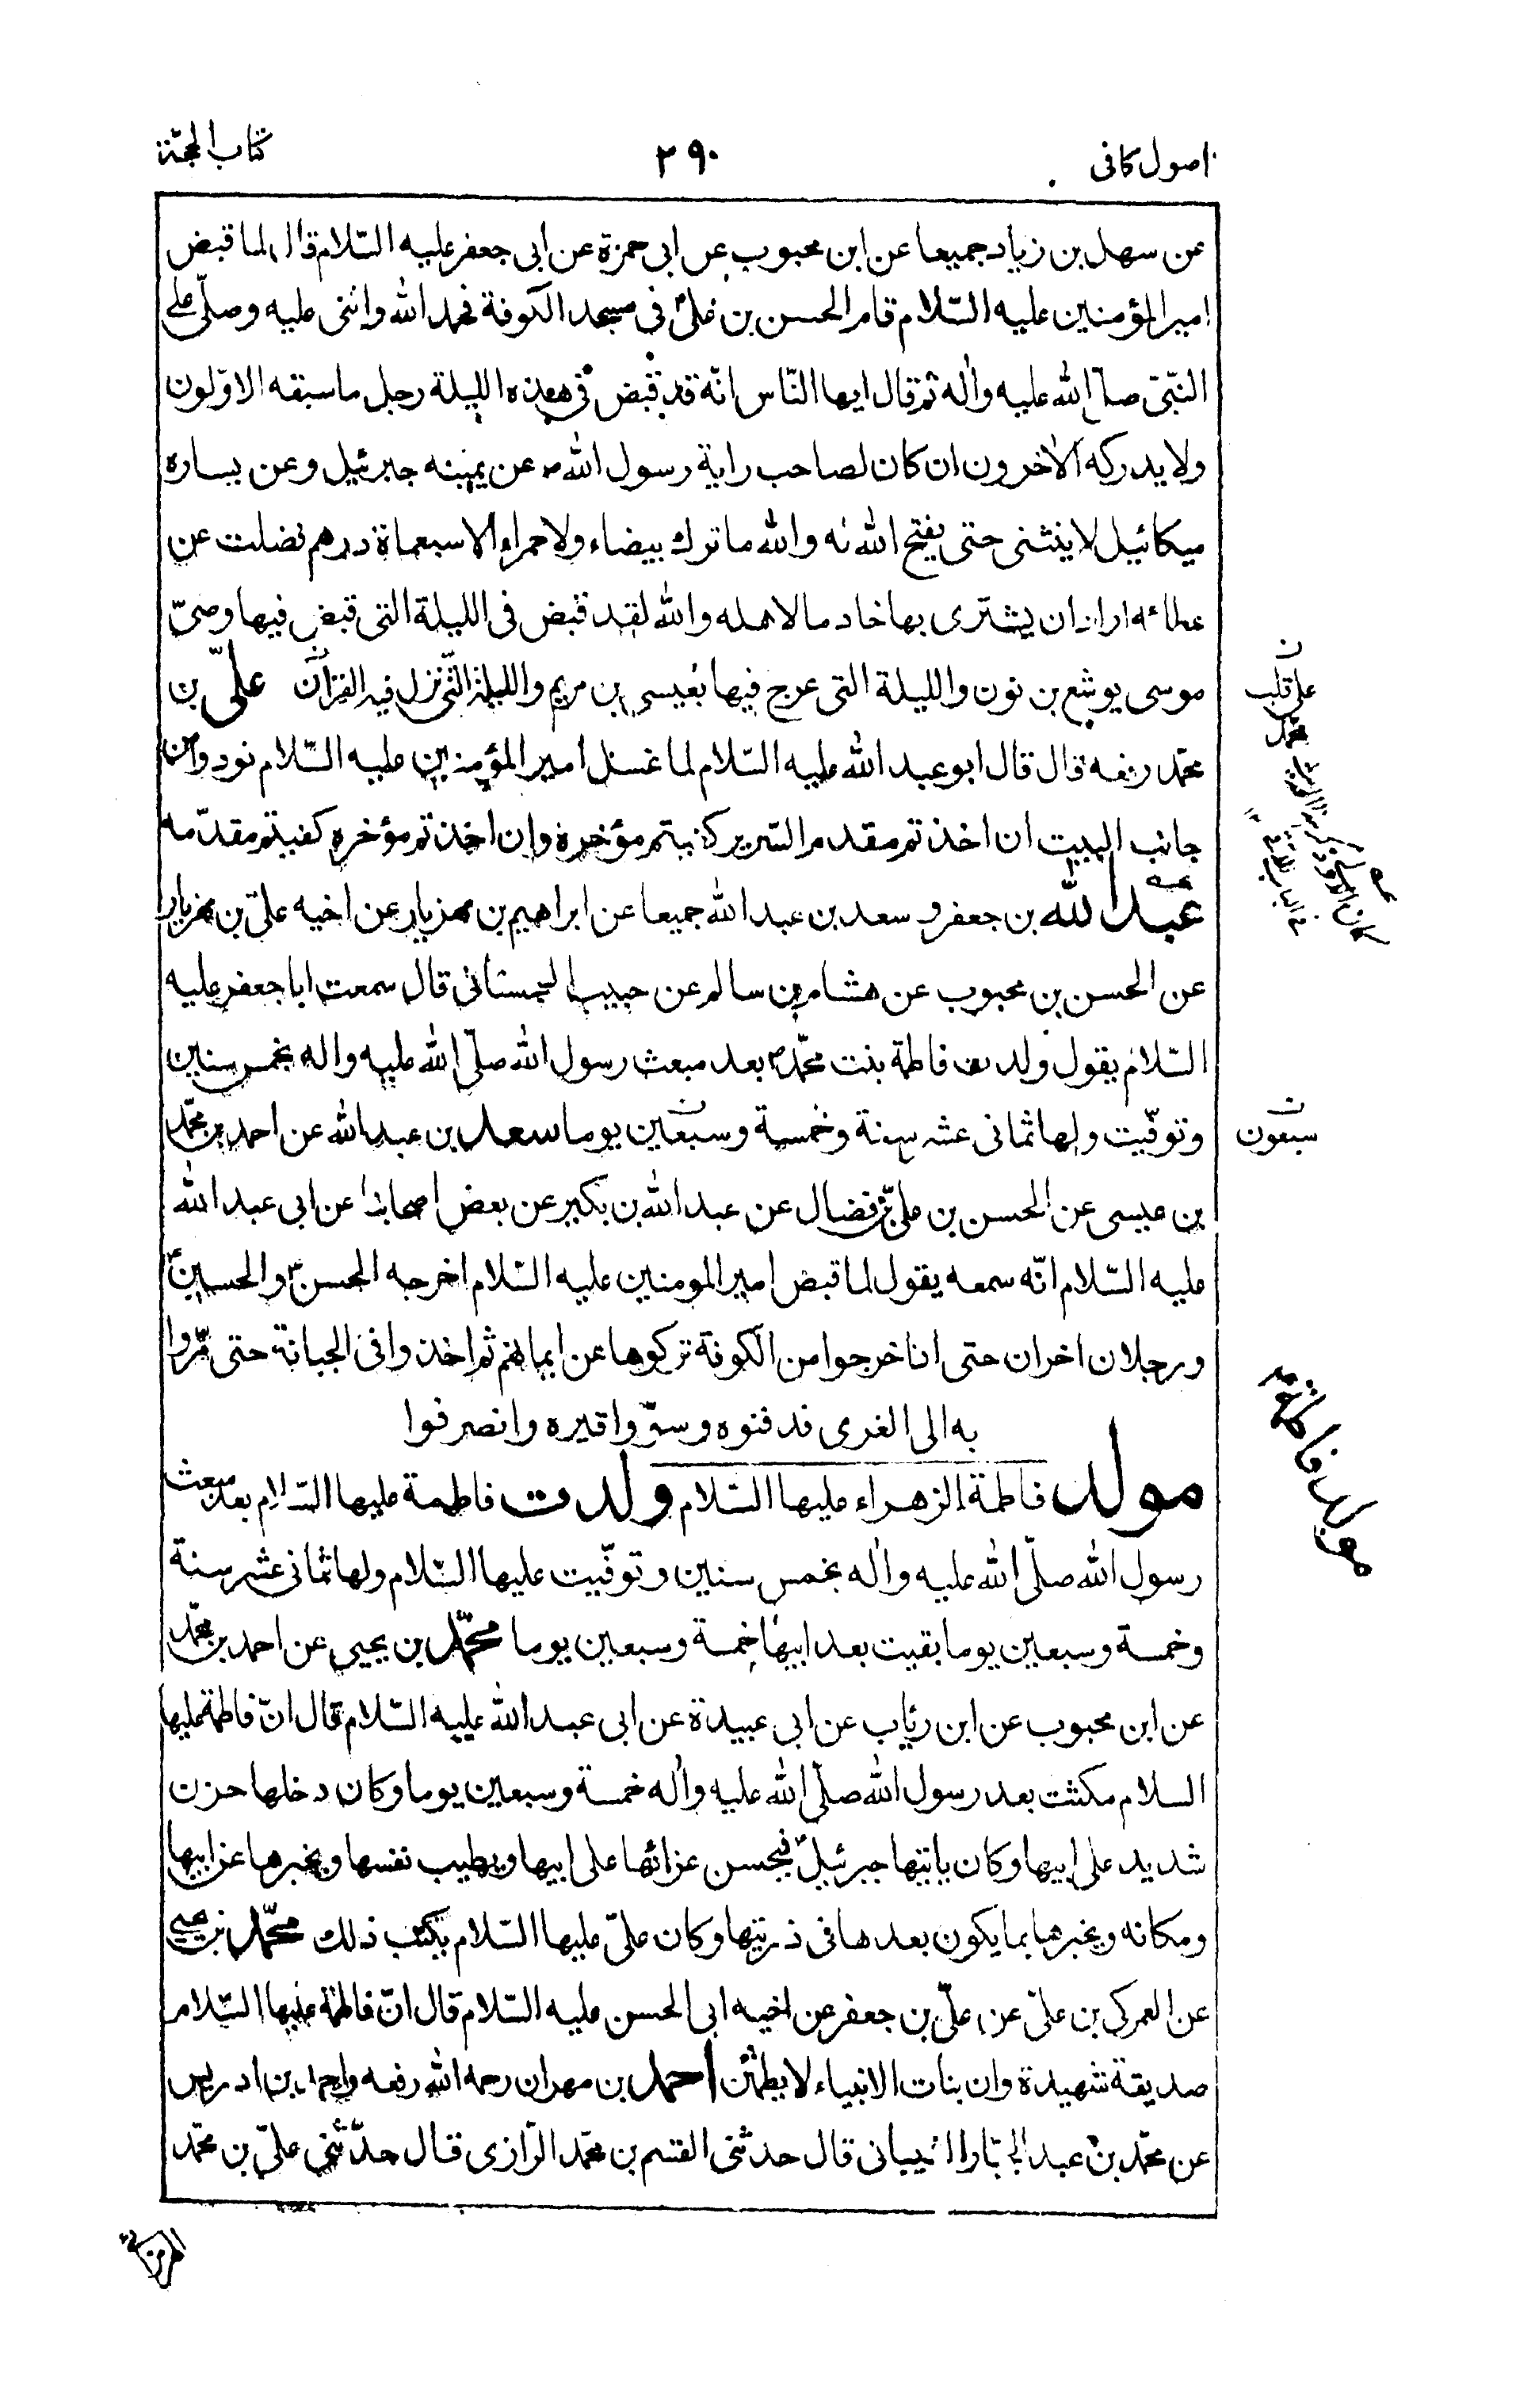 اصول كافى
٢٩٠
كتاب الحجّة
عن سهل بن زياد جميعا عن ابن محبوب عن ابى حمزة عن ابى جعفر عليه السّلام قال لما قبض
امير المؤمنين عليه السّلام قام الحسن بن علىّ فى مسجد الكوفة فحمد الله واثنى عليه وصلّى على
النّبىّ صلّى الله عليه واله ثم قال ايها النّاس انّه قد قبض فى هذه الليلة رجل ما سبقه الاوّلون
ولا يدركه الاخرون ان كان لصاحب راية رسول الله ص عن يمينه جبرئيل وعن يساره
ميكائيل لا ينثنى حتى يفتح الله له والله ما ترك بيضاء ولا حمراء الا سبعماة درهم فضلت عن
عطائه اراد ان يشترى بها خادما لاهله والله لقد قبض فى الليلة التى قبض فيها وصىّ
موسى يوشع بن نون والليلة التى عرج فيها بعيسى بن مريم والليلة الّتى نزل فيه القران علىّ بن
محمّد رفعه قال قال ابو عبد الله عليه السّلام لما غسل امير المؤمنين عليه السّلام نودوا من
جانب البيت ان اخذتم مقدم السّرير كفيتم مؤخره وان اخذتم مؤخره كفيتم مقدّمه
عبد الله بن جعفر و سعد بن عبد الله جميعا عن ابراهيم بن مهزيار عن اخيه علىّ بن مهزيار
عن الحسن بن محبوب عن هشام بن سالم عن حبيب السّجستانى قال سمعت ابا جعفر عليه
السّلام يقول ولدت فاطمة بنت محمّد ص بعد مبعث رسول الله صلّى الله عليه واله بخمس سنين
وتوفّيت ولها ثمانى عشر سنة وخمسة وسبعين يوما سعد بن عبد الله عن احمد بن محمّد
بن عيسى عن الحسن بن علىّ بن فضال عن عبد الله بن بكير عن بعض اصحابنا عن ابى عبد الله
عليه السّلام انّه سمعه يقول لما قبض امير المومنين عليه السّلام اخرجه الحسن والحسين
ورجلان اخران حتى اذا خرجوا من الكوفة تركوها عن ايمانهم ثم اخذوا فى الجبانة حتى مّروا
به الى الغرى فدفنوه وسوّوا قبره وانصرفوا
مولد فاطمة الزهراء عليها السّلام ولدت فاطمة عليها السّلام بعد مبعث
رسول الله صلّى الله عليه واله بخمس سنين وتوفّيت عليها السّلام ولها ثمانى عشر سنة
وخمسة وسبعين يوما بقيت بعد ابيها خمسة وسبعين يوما محمّد بن يحيى عن احمد بن محمّد
عن ابن محبوب عن ابن رئاب عن ابى عبيدة عن ابى عبد الله عليه السّلام قال انّ فاطمة عليها
السلام مكثت بعد رسول الله صلّى الله عليه واله خمسة وسبعين يوما وكان دخلها حزن
شديد على ابيها وكان ياتيها جبرئيل فيحسن عزائها على ابيها ويطيب نفسها ويخبرها عن ابيها
ومكانه ويخبرها بما يكون بعدها فى ذريتها وكان علىّ عليها السّلام يكتب ذلك محمّد بن يحيى
عن العمركى بن علىّ عن علىّ بن جعفر عن اخيه ابى الحسن عليه السّلام قال انّ فاطمة عليها السّلام
صديقة شهيدة وان بنات الانبياء لا يطمثن احمد بن مهران رحمه الله رفعه واحمد بن ادريس
عن محمّد بن عبد الجبّار الشيبانى قال حدثنى القسم بن محمّد الرّازى قال حدّثنى علىّ بن محمّد
على قلب
محمّد
سبعون
مولد فاطمة